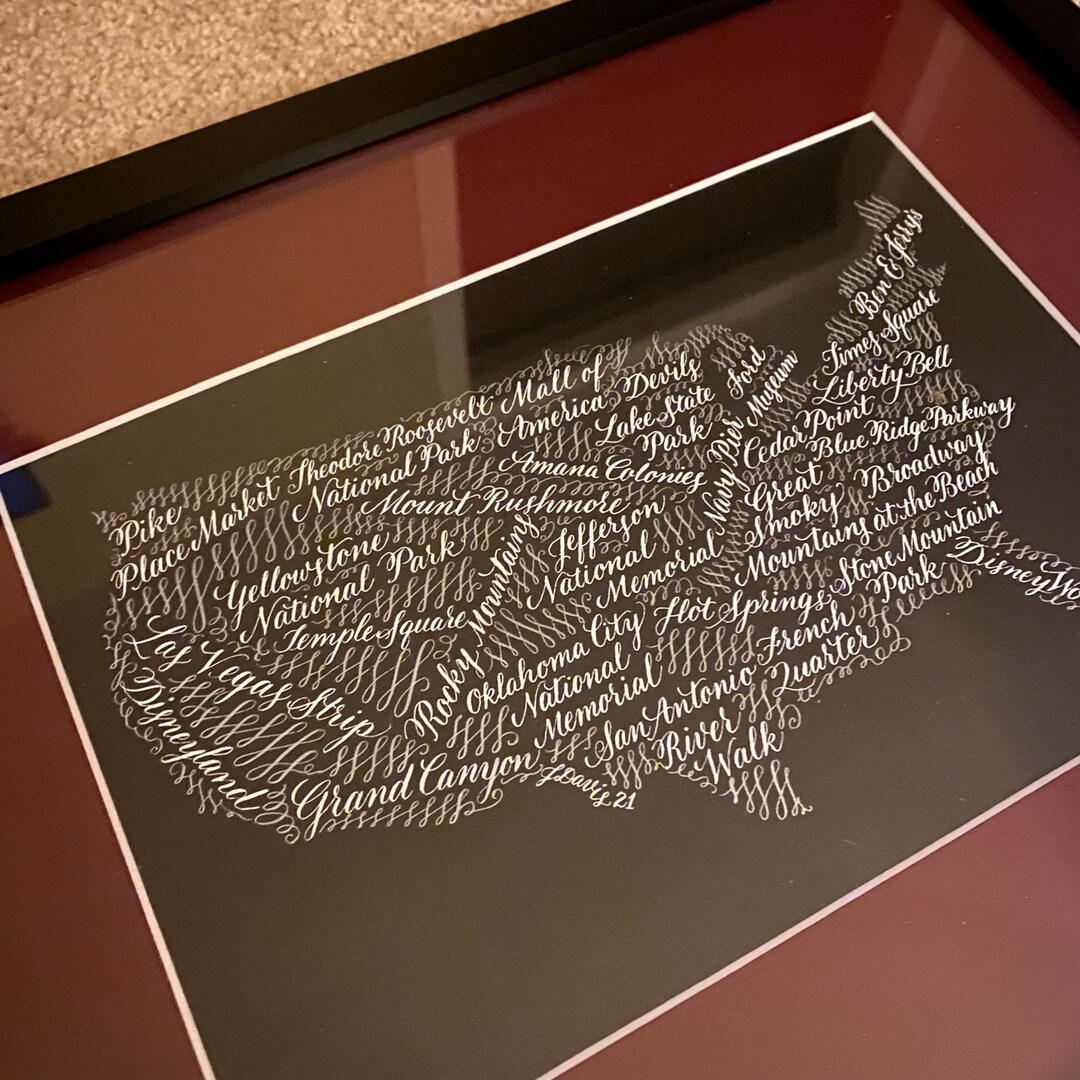 Ben & Jerry's
Times Square
Liberty Bell
Ford
Museum
Mall of
America
Devils
Lake State
Park
Theodore Roosevelt
National Park
Cedar Point
Blue Ridge Parkway
Navy Pier
Amana Colonies
Pike
Place Market
Mount Rushmore
Great
Smoky
Mountains
Broadway
at the Beach
Jefferson
National
Memorial
Yellowstone
National Park
Stone Mountain
Park
Disney Wo
Temple Square
Rocky Mountains
Hot Springs
Oklahoma City
National
Memorial
French
Quarter
Las Vegas Strip
Disneyland
San Antonio
River
Walk
Grand Canyon
J. Davis 21